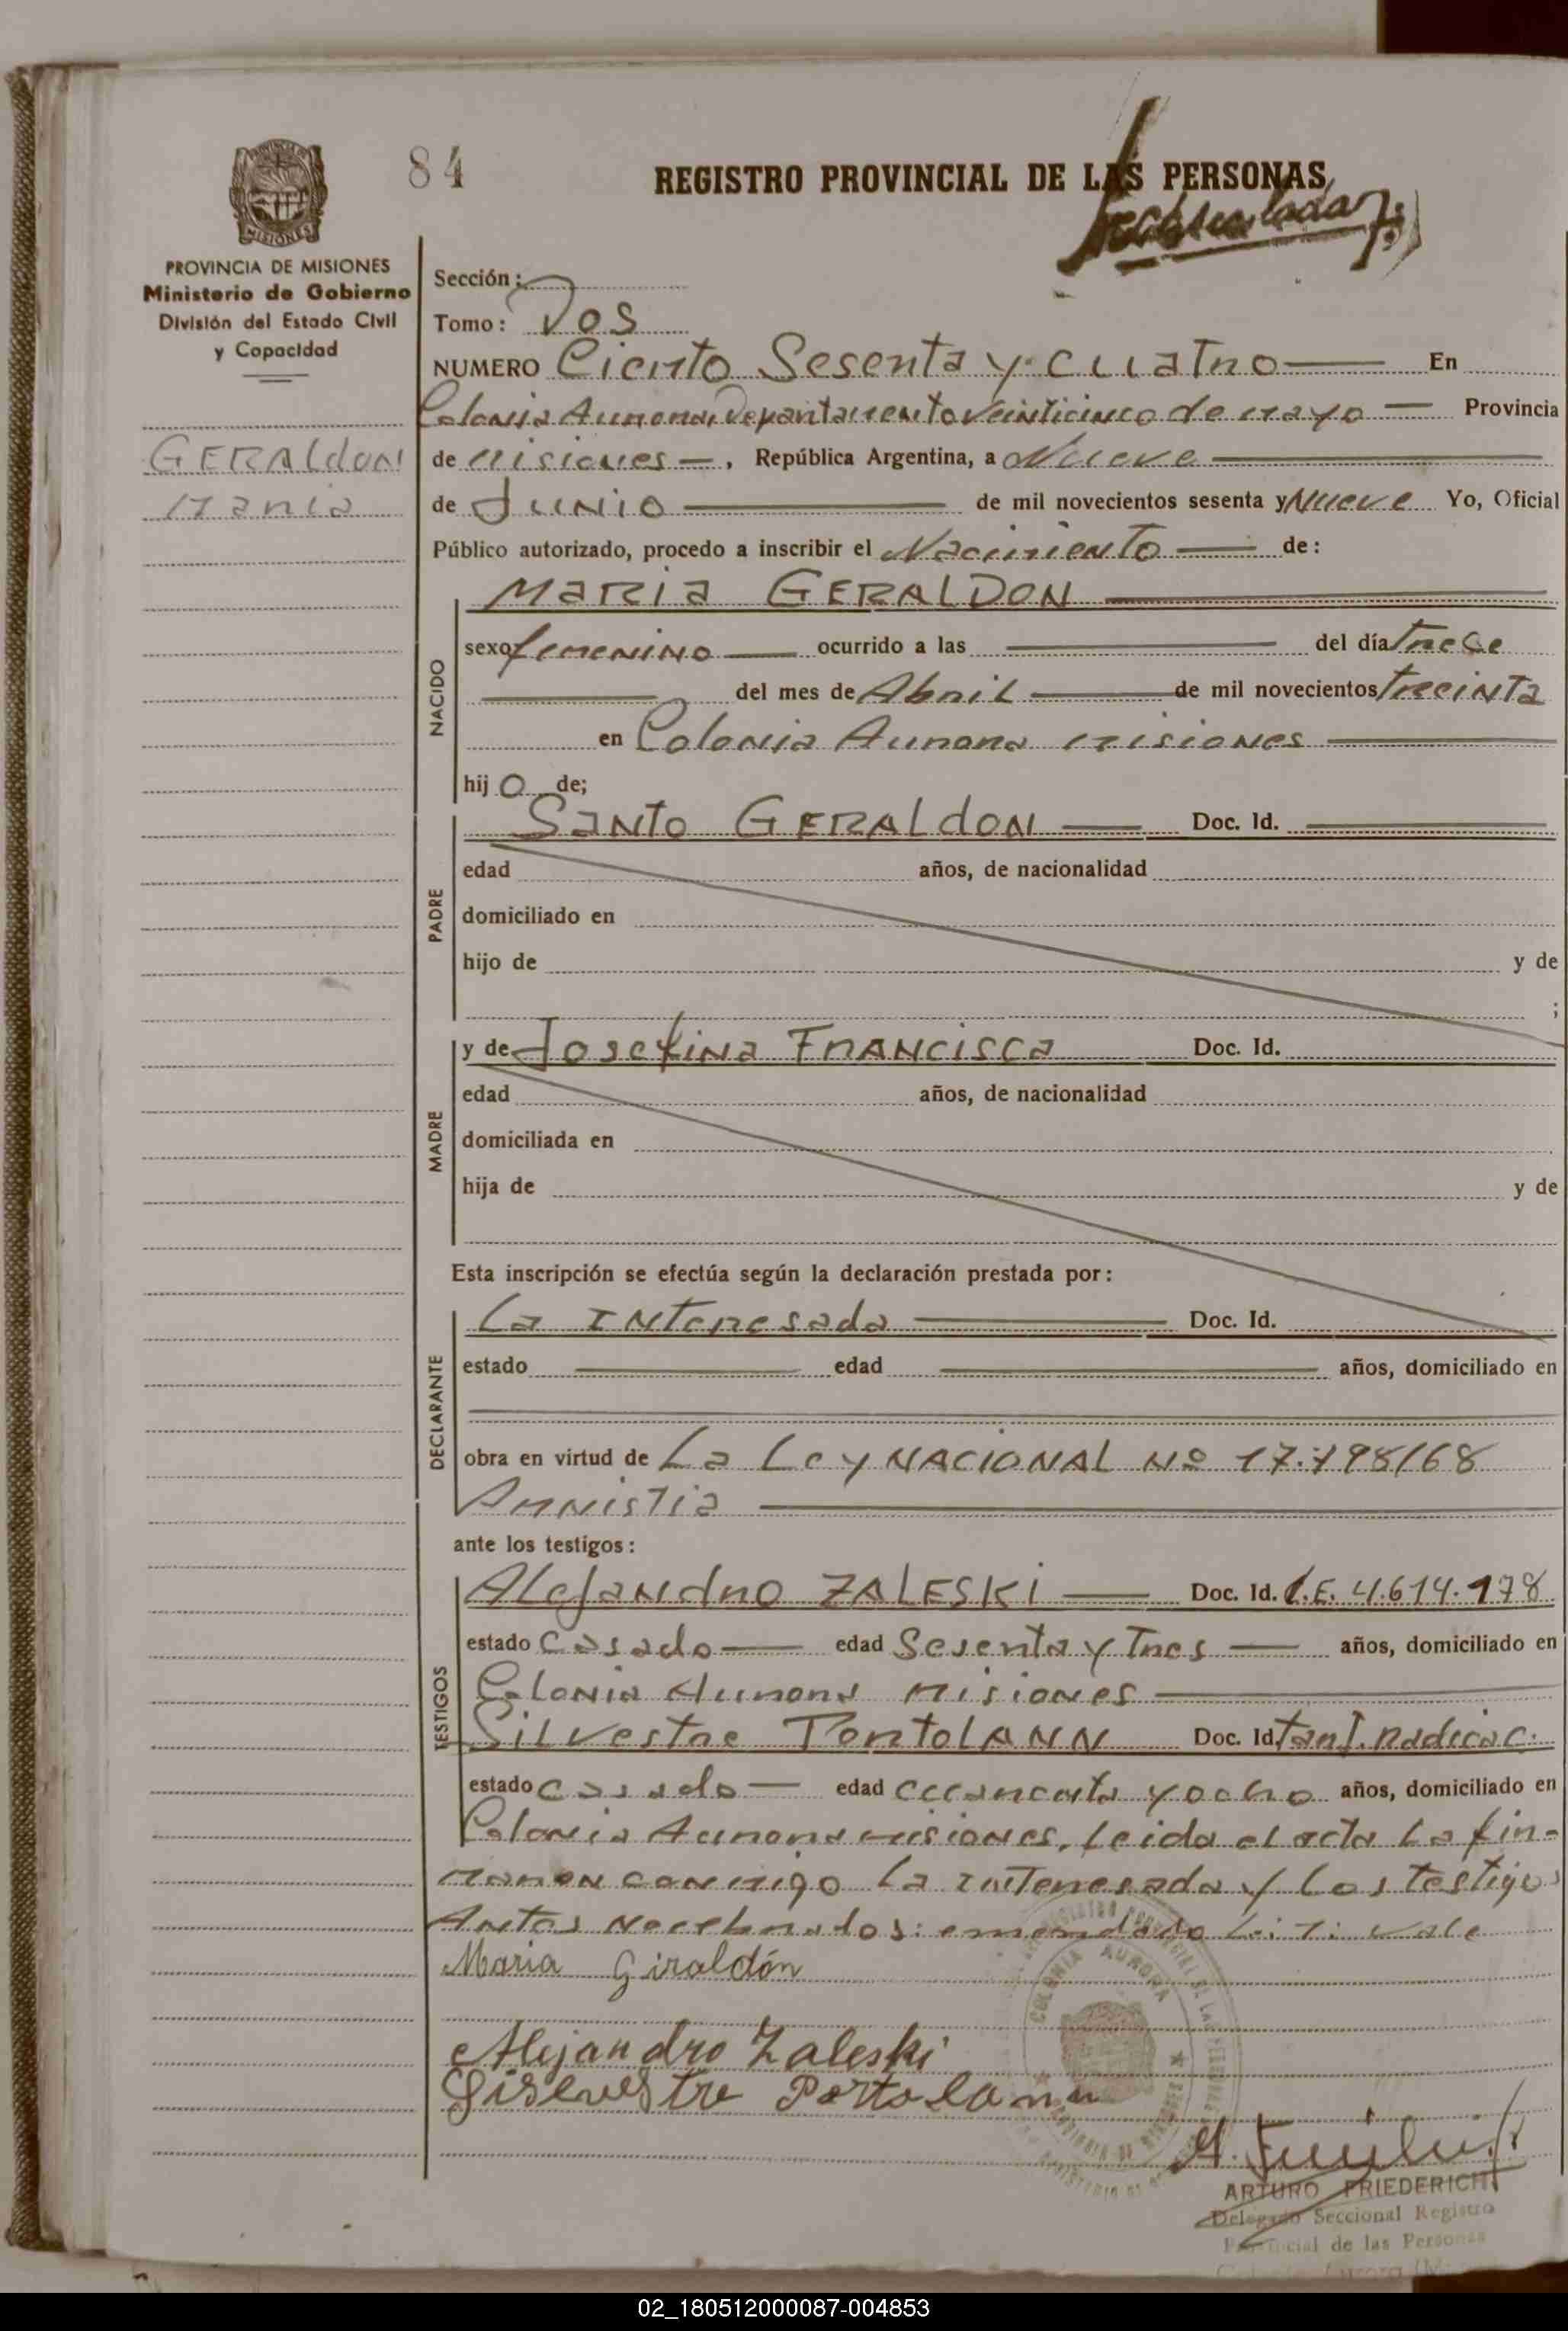 84
REGISTRO PROVINCIAL DE LAS PERSONAS
MISIONES
PROVINCIA DE MISIONES
Ministerio de Gobierno
División del Estado Civil
y Capacidad
GERALdON
Maria
Sección:
Tomo: Dos
NUMERO Ciento Sesenta y cuatro En
Colonia Aurora, Departamento Veinticinco de mayo Provincia
de Misiones, República Argentina, a Nueve
de Junio de mil novecientos sesenta y Nueve Yo, Oficial
Público autorizado, procedo a inscribir el Nacimiento de:
NACIDO
Maria GERALDON
sexo femenino ocurrido a las del día trece
del mes de Abril de mil novecientos treinta
en Colonia Aurora Misiones
hij o de;
PADRE
Santo GERALdON Doc. Id.
edad años, de nacionalidad
domiciliado en
hijo de y de
;
MADRE
y de Josefina Francisca Doc. Id.
edad años, de nacionalidad
domiciliada en
hija de y de
Esta inscripción se efectúa según la declaración prestada por:
DECLARANTE
La Interesada Doc. Id.
estado edad años, domiciliado en
obra en virtud de La Ley NACIONAL Nº 17.798/68
Amnistia
ante los testigos:
TESTIGOS
Alejandro ZALESKI Doc. Id. L.E. 4.614.178
estado Casado edad Sesenta y Tres años, domiciliado en
Colonia Aurora Misiones
Silvestre PortolANN Doc. Id. tarj. Radicac.
estado Casado edad cuarenta y ocho años, domiciliado en
Colonia Aurora misiones. Leida el acta La fir-
maron conmigo La interesada y Los testigos
Antes Nombrados: emendado L: T: Vale
Maria Giraldón
Alejandro Zaleski
Silvestre Portolann
COLONIA AURORA
ARTURO FRIEDERICH
Delegado Seccional Registro
Provincial de las Personas
02_180512000087-004853